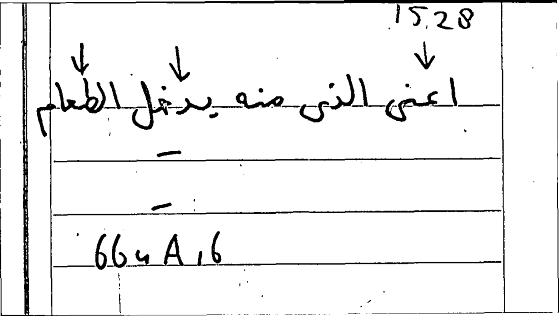 15.28
اعنى الذى منه يدخل الطعام
66u A, 6